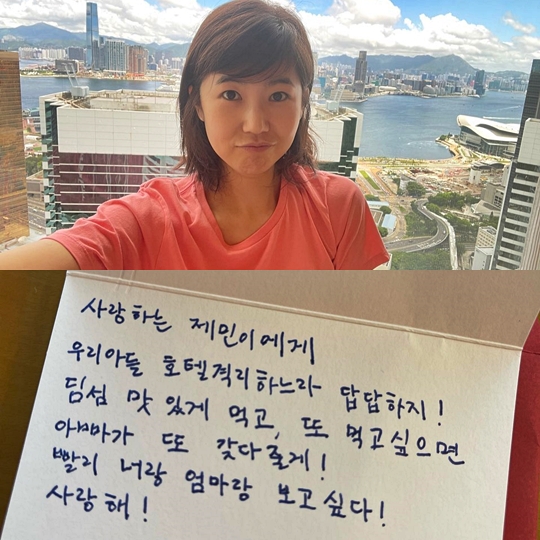 사랑하는 제민이에게
우리아들 호텔격리하느라 답답하지!
딤섬 맛있게 먹고, 또 먹고싶으면
아빠가 또 갖다줄게!
빨리 너랑 엄마랑 보고싶다!
사랑해!